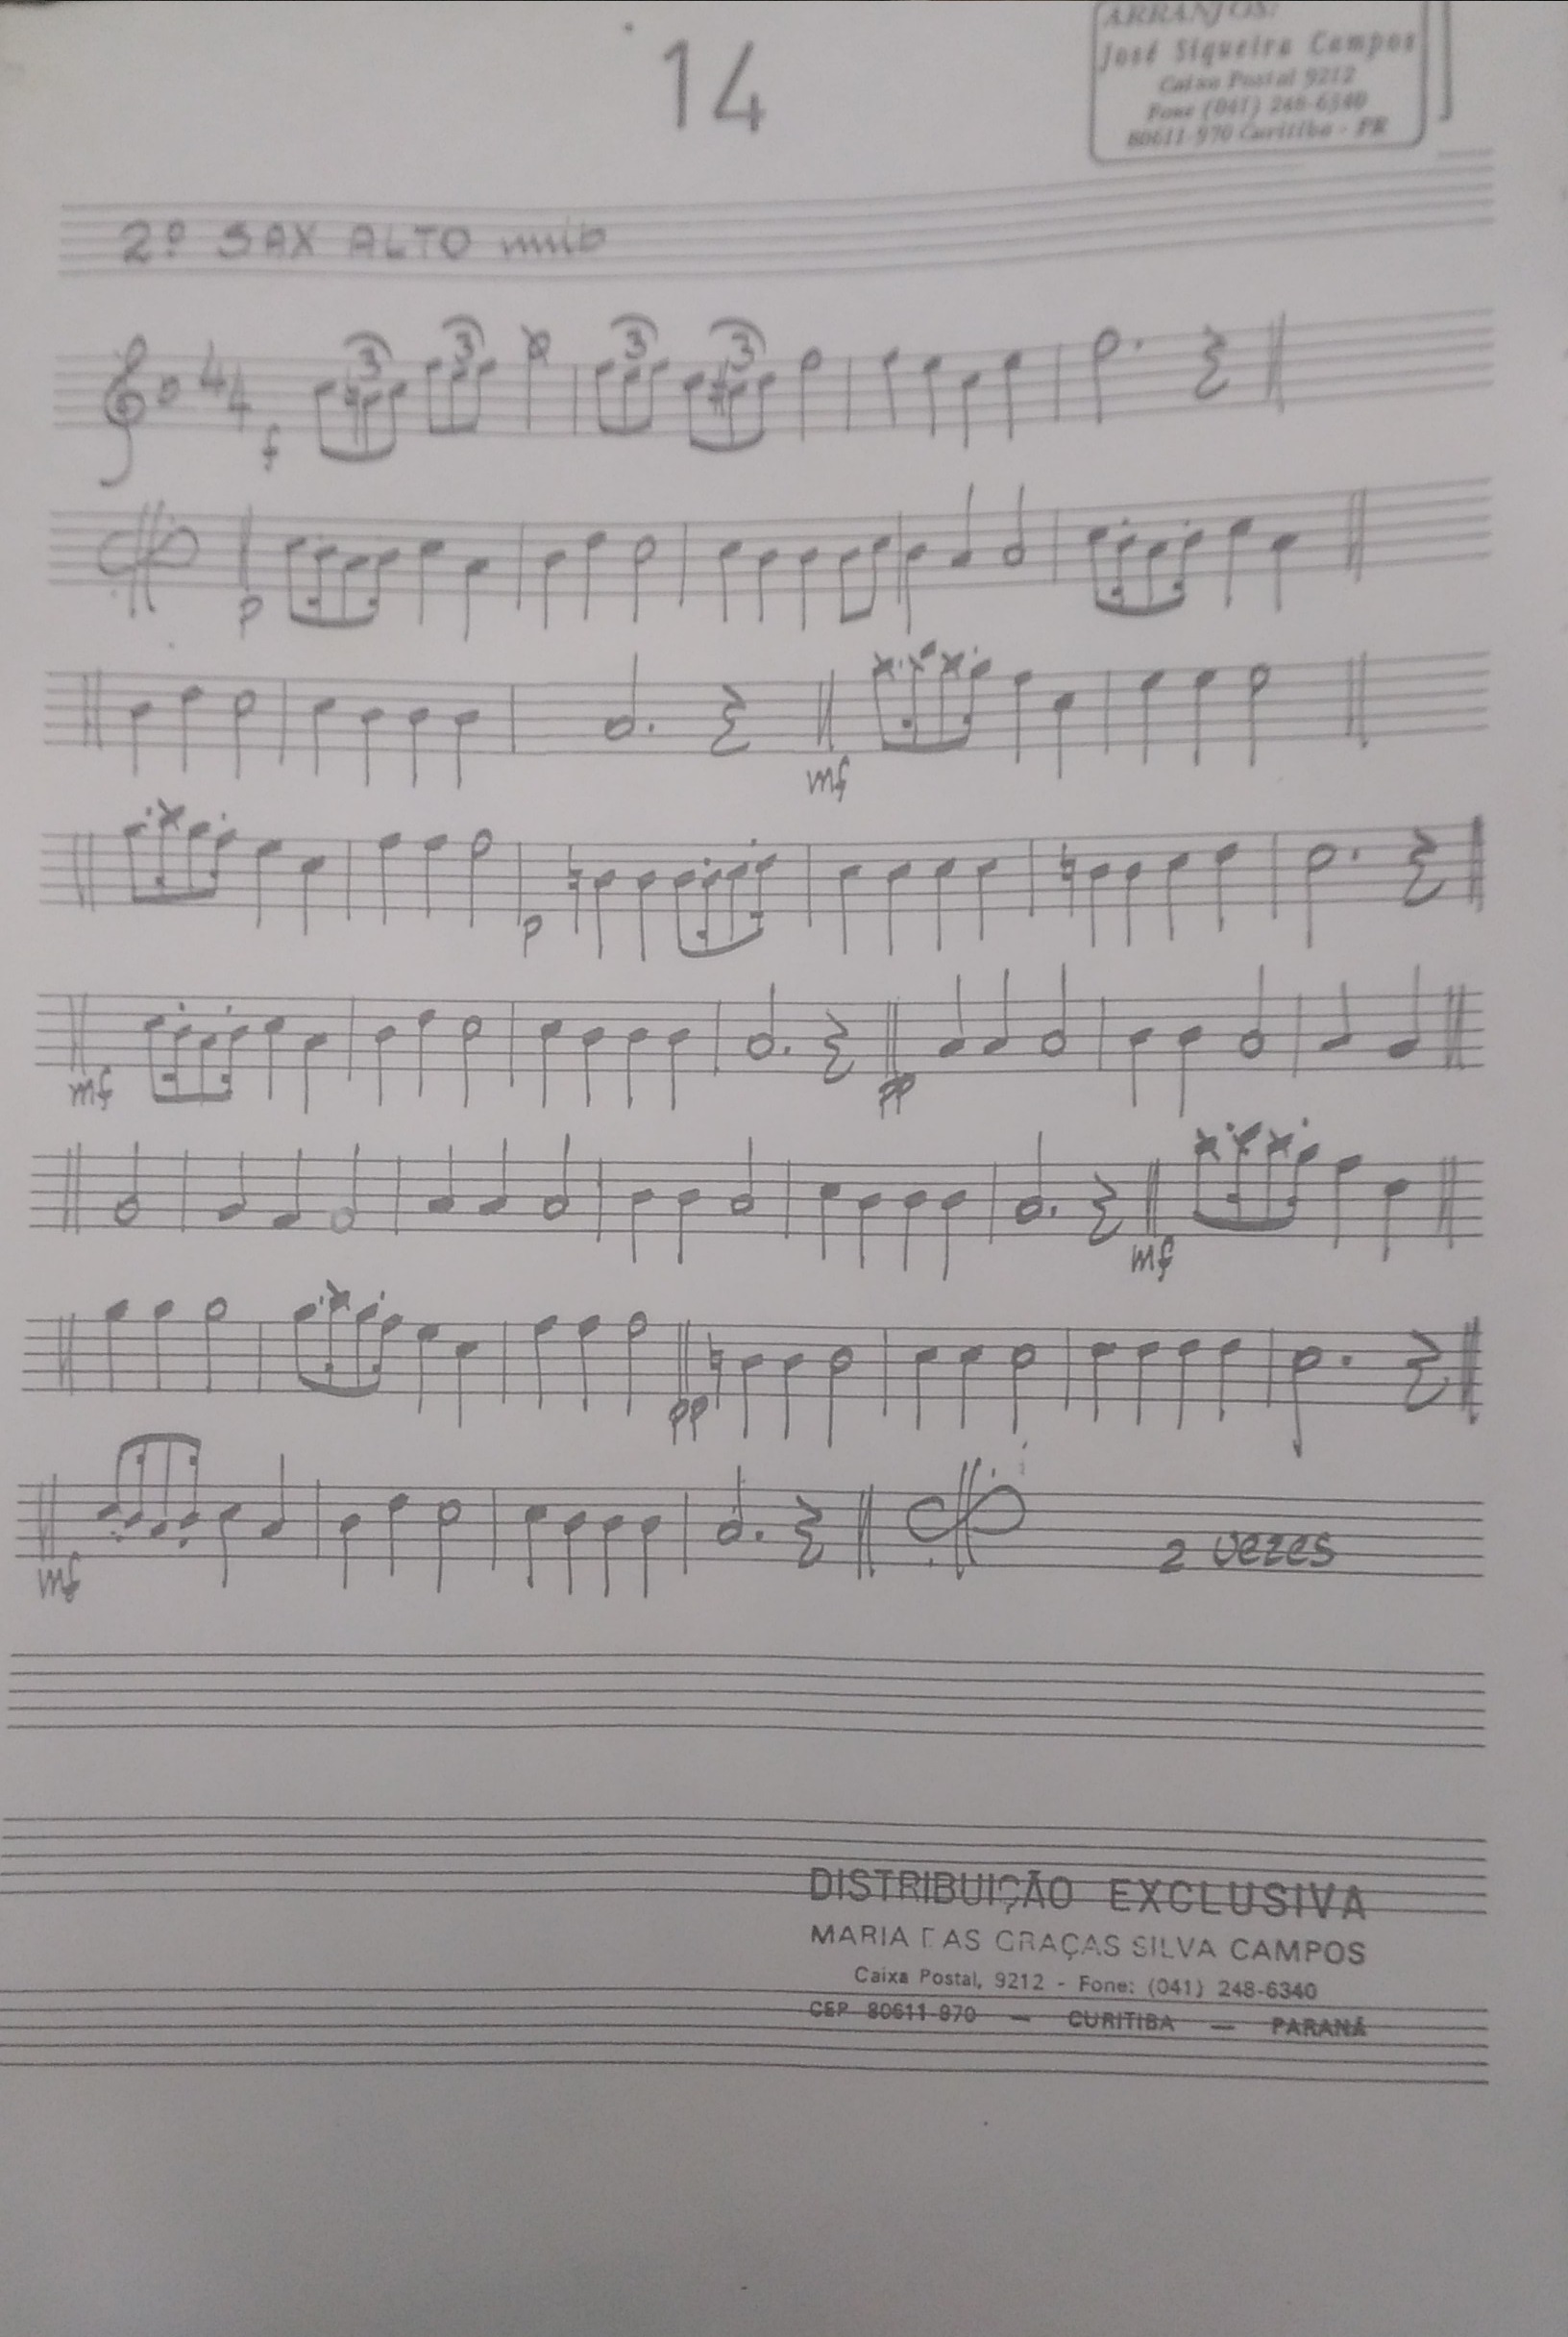 14
ARRANJOS:
José Siqueira Campos
Caixa Postal 9212
Fone (041) 248-6340
80611-970 Curitiba - PR
2º SAX ALTO mib
4
4
3
3
3
3
f
p
mf
p
mf
pp
mf
pp
mf
2 vezes
DISTRIBUIÇÃO EXCLUSIVA
MARIA DAS GRAÇAS SILVA CAMPOS
Caixa Postal, 9212 - Fone: (041) 248-6340
CEP 80611-970 — CURITIBA — PARANÁ